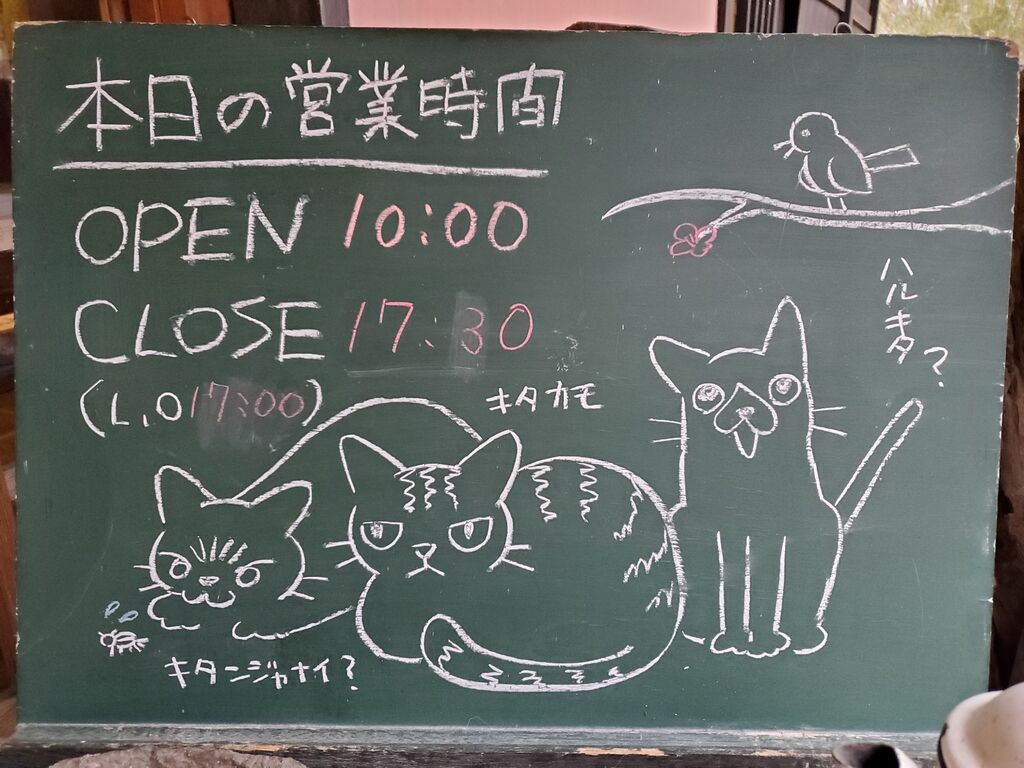 本日の営業時間
OPEN 10:00
CLOSE 17.30
(L.O17:00)
ハルキタ?
キタカモ
キタンジャナイ?